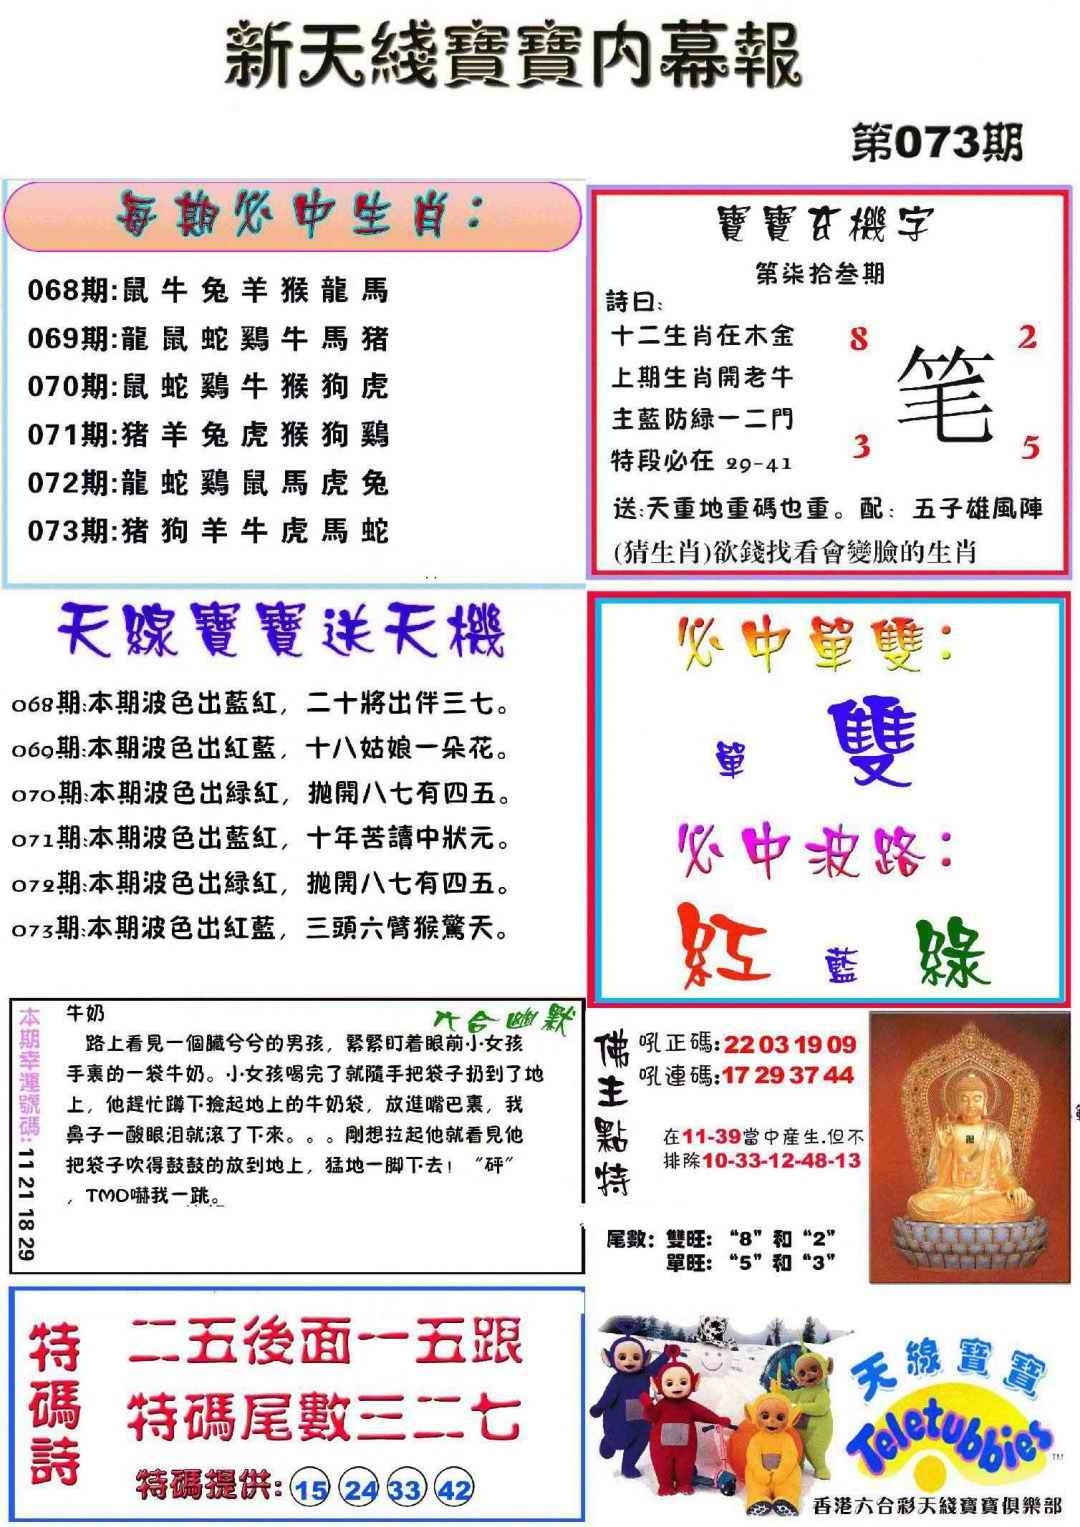 新天綫寶寶内幕報
第073期
每期必中生肖：
068期:鼠牛兔羊猴龍馬
069期:龍鼠蛇鷄牛馬猪
070期:鼠蛇鷄牛猴狗虎
071期:猪羊兔虎猴狗鷄
072期:龍蛇鷄鼠馬虎兔
073期:猪狗羊牛虎馬蛇
寶寶玄機字
第柒拾叁期
詩曰:
十二生肖在木金
上期生肖開老牛
主藍防緑一二門
特段必在 29-41
8 2
笔
3 5
送:天重地重碼也重。配：五子雄風陣
(猜生肖)欲錢找看會變臉的生肖
天線寶寶送天機
068期:本期波色出藍紅，二十將出伴三七。
069期:本期波色出紅藍，十八姑娘一朵花。
070期:本期波色出緑紅，拋開八七有四五。
071期:本期波色出藍紅，十年苦讀中狀元。
072期:本期波色出緑紅，拋開八七有四五。
073期:本期波色出紅藍，三頭六臂猴驚天。
必中單雙：
單 雙
必中波路：
紅 藍 綠
本期幸運號碼: 11 21 18 29
六合幽默
牛奶
路上看見一個臟兮兮的男孩，緊緊盯着眼前小女孩
手裏的一袋牛奶。小女孩喝完了就隨手把袋子扔到了地
上，他趕忙蹲下撿起地上的牛奶袋，放進嘴巴裏，我
鼻子一酸眼泪就滚了下來。。。剛想拉起他就看見他
把袋子吹得鼓鼓的放到地上，猛地一脚下去！“砰”
，TMD嚇我一跳。
佛主點特
吼正碼:22 03 19 09
吼連碼:17 29 37 44
在11-39當中産生.但不
排除10-33-12-48-13
尾數：雙旺：“8”和“2”
單旺：“5”和“3”
特碼詩
二五後面一五跟
特碼尾數三二七
特碼提供: 15 24 33 42
天線寶寶
Teletubbies
TM
香港六合彩天綫寶寶俱樂部